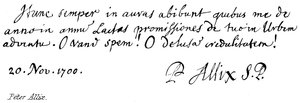 Hunc semper in auras abibunt quibus me de
anno in annum Lactas promissiones de tuo in Urbem
adventu. O vanā spem! O Delusa credulitatem!
20. Nov. 1700. P Allix S.P.
Peter Allix.